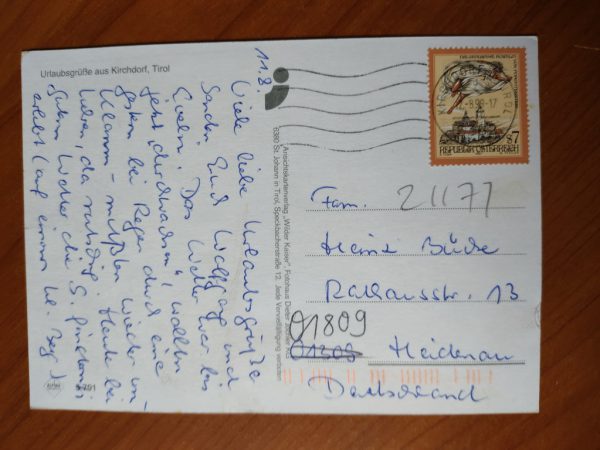 Urlaubsgrüße aus Kirchdorf, Tirol
11.8.
Viele liebe Urlaubsgrüße
senden Euch Wolfgang und
Evelin. Das Wetter war bis
jetzt „durchwachsen“, wollten
gestern bei Regen durch eine
Klamm - mußten wieder um-
kehren, da rutschig. Heute bei
gutem Wetter die S. finsternis
erlebt (auf einem kl. Berg)
5 751
Ansichtskartenverlag "Wilder Kaiser", Fotohaus Dieter
6380 St. Johann in Tirol, Speckbacherstraße 12, Jede Vervielfältigung verboten
S 7
REPUBLIK ÖSTERREICH
-8.99-17
21177
Fam.
Heinz
13
01809
01309 Heidenau
Deutschland